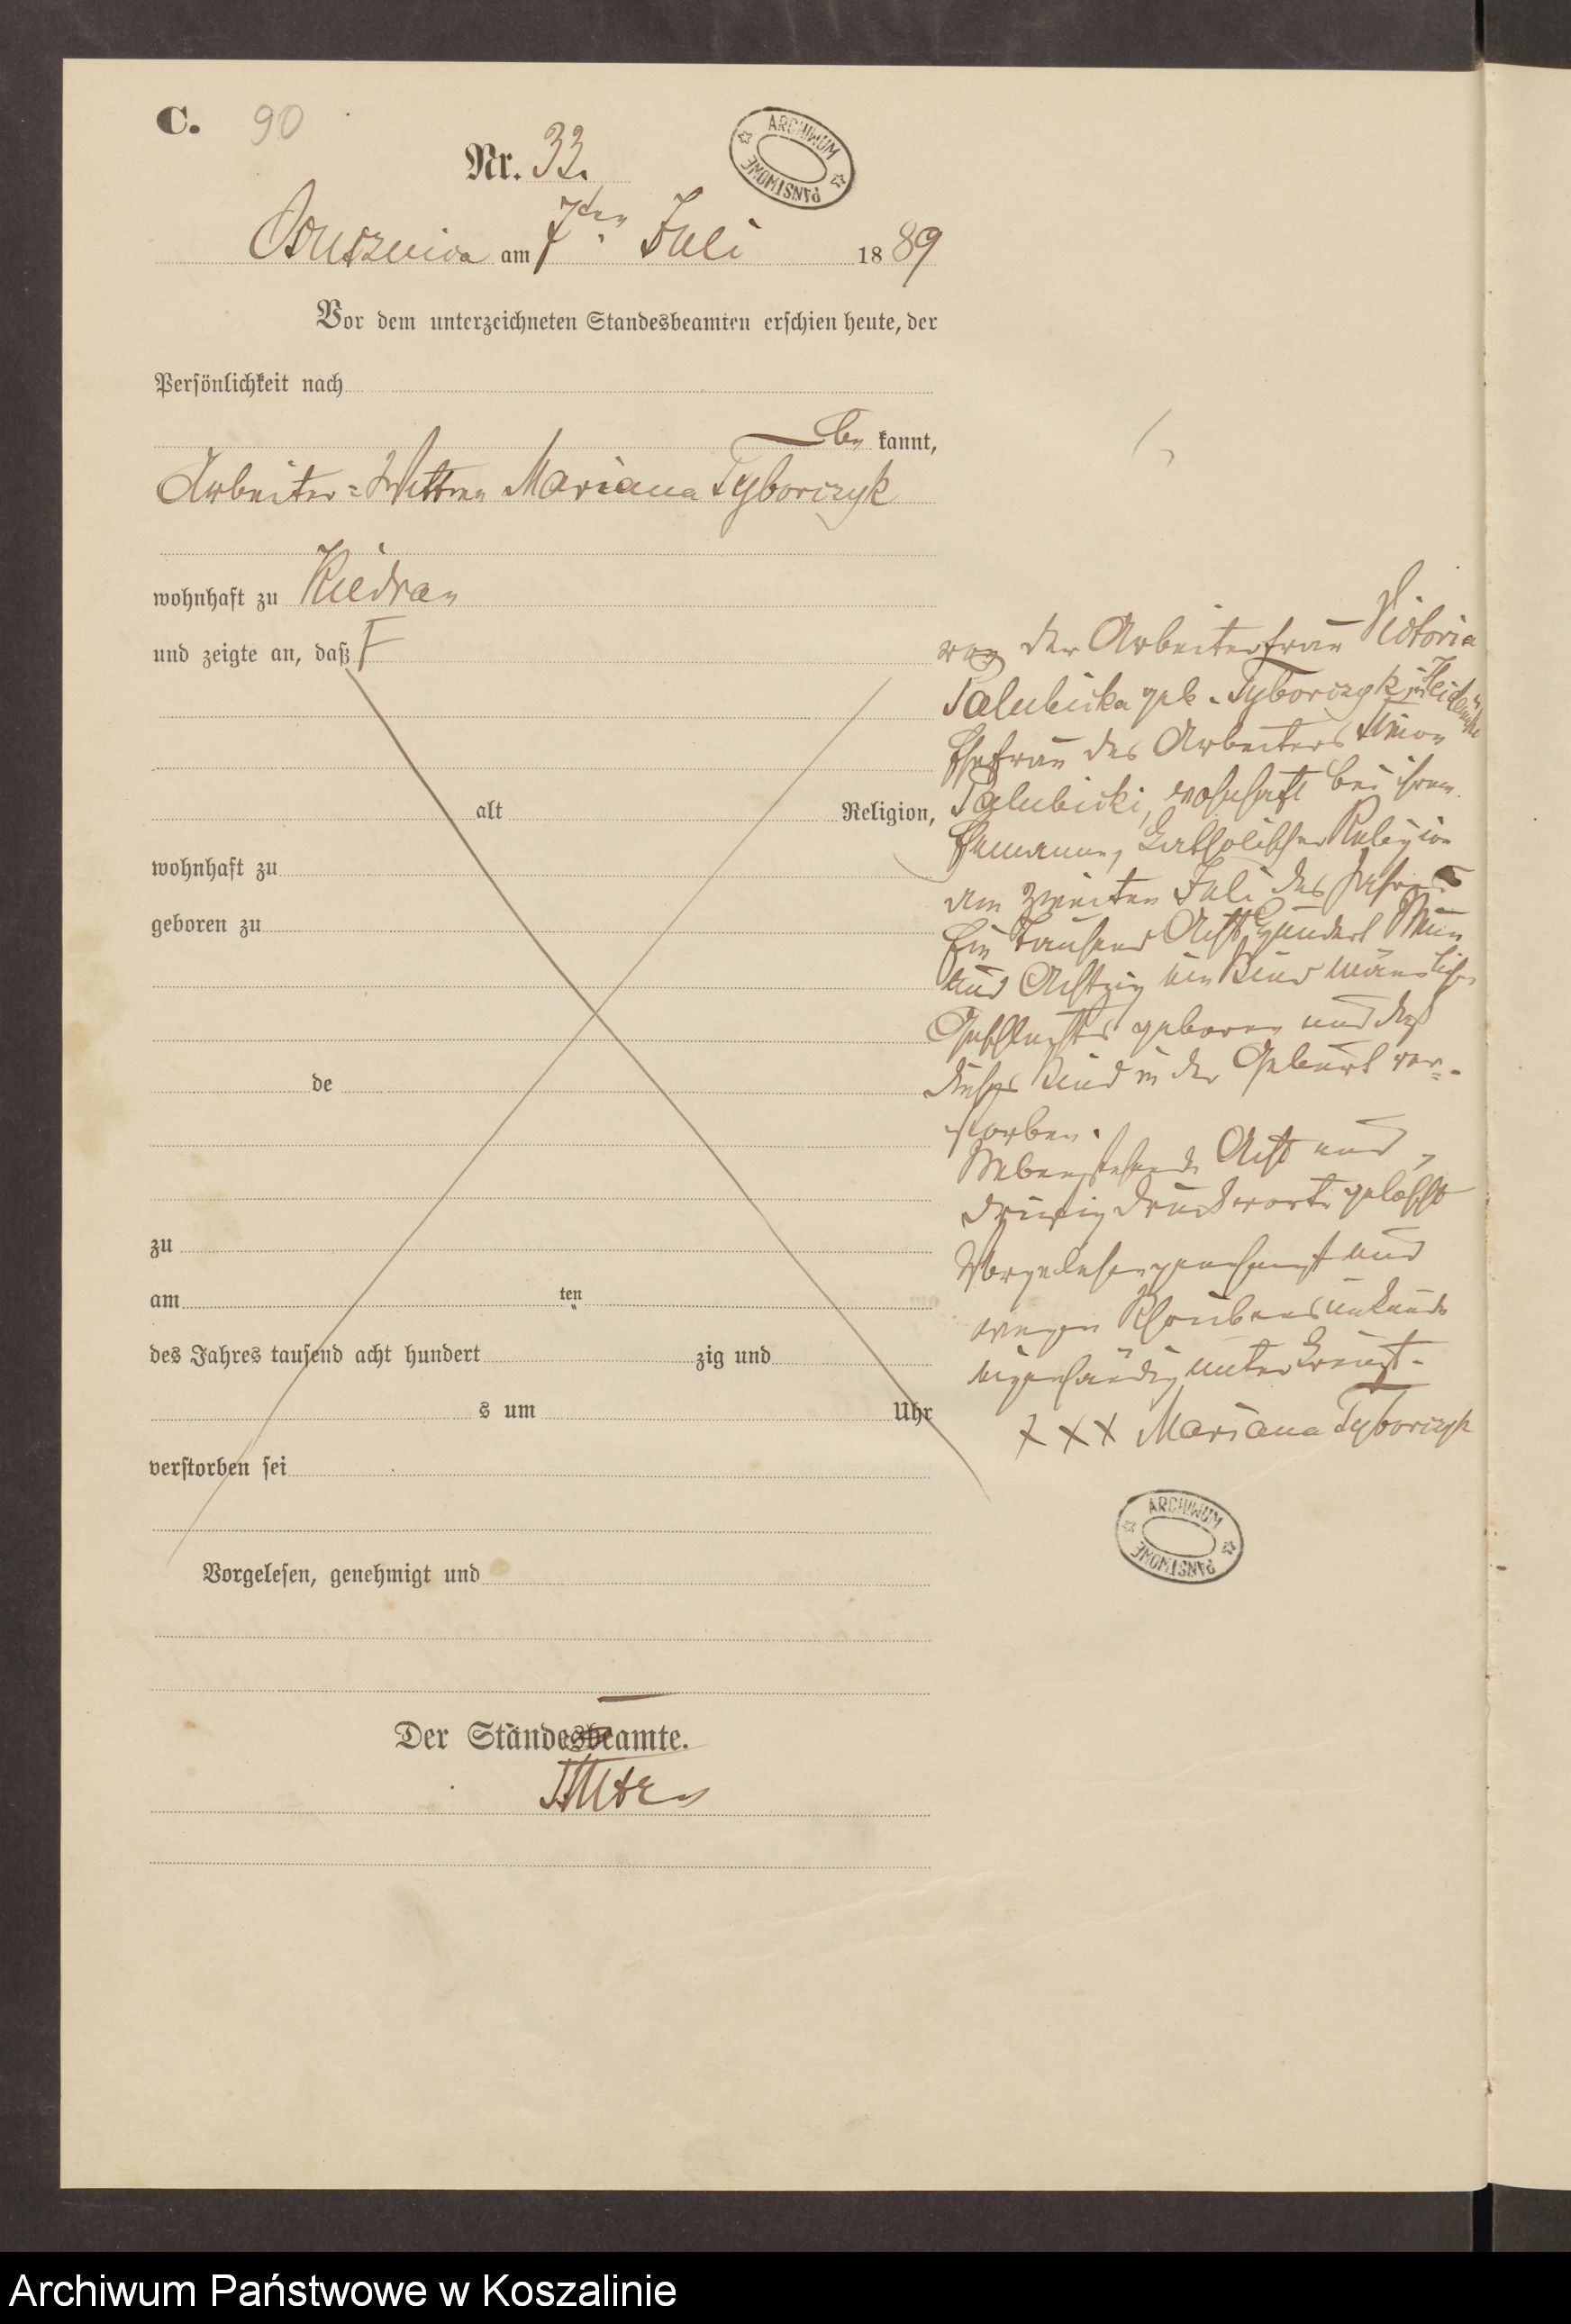 C. 90
Nr. 33.
ARCHIWUM PAŃSTWOWE
Ossuszniça am 7ten Juli 1889
Vor dem unterzeichneten Standesbeamten erschien heute, der
Persönlichkeit nach
be kannt,
Arbeiter-Wittwe Mariana Tyborczyk
wohnhaft zu
und zeigte an, daß
alt Religion,
wohnhaft zu
geboren zu
de
zu
am ten
des Jahres tausend acht hundert zig und
s um Uhr
verstorben sei
Vorgelesen, genehmigt und
von der Arbeiterfrau Victoria
Palubicka geb. Tyborczyk
Ehefrau des Arbeiters Simon
Palubicki, wohnhaft bei ihrem
Ehemanne, katholischer Religion
am zweiten Juli des Jahres
Ein Tausend Acht Hundert Neun
und Achtzig ein Kind männlichen
Geschlechts geboren und daß
dieses Kind in der Geburt ver-
storben.
Nebenstehende Acht und
dreißig Druckworte gelöscht
Vorgelesen genehmigt und
wegen Schreibensunkunde
eigenhändig unterkreuzt.
XXX Mariana Tyborczyk
ARCHIWUM PAŃSTWOWE
Der Standesbeamte.
Archiwum Państwowe w Koszalinie